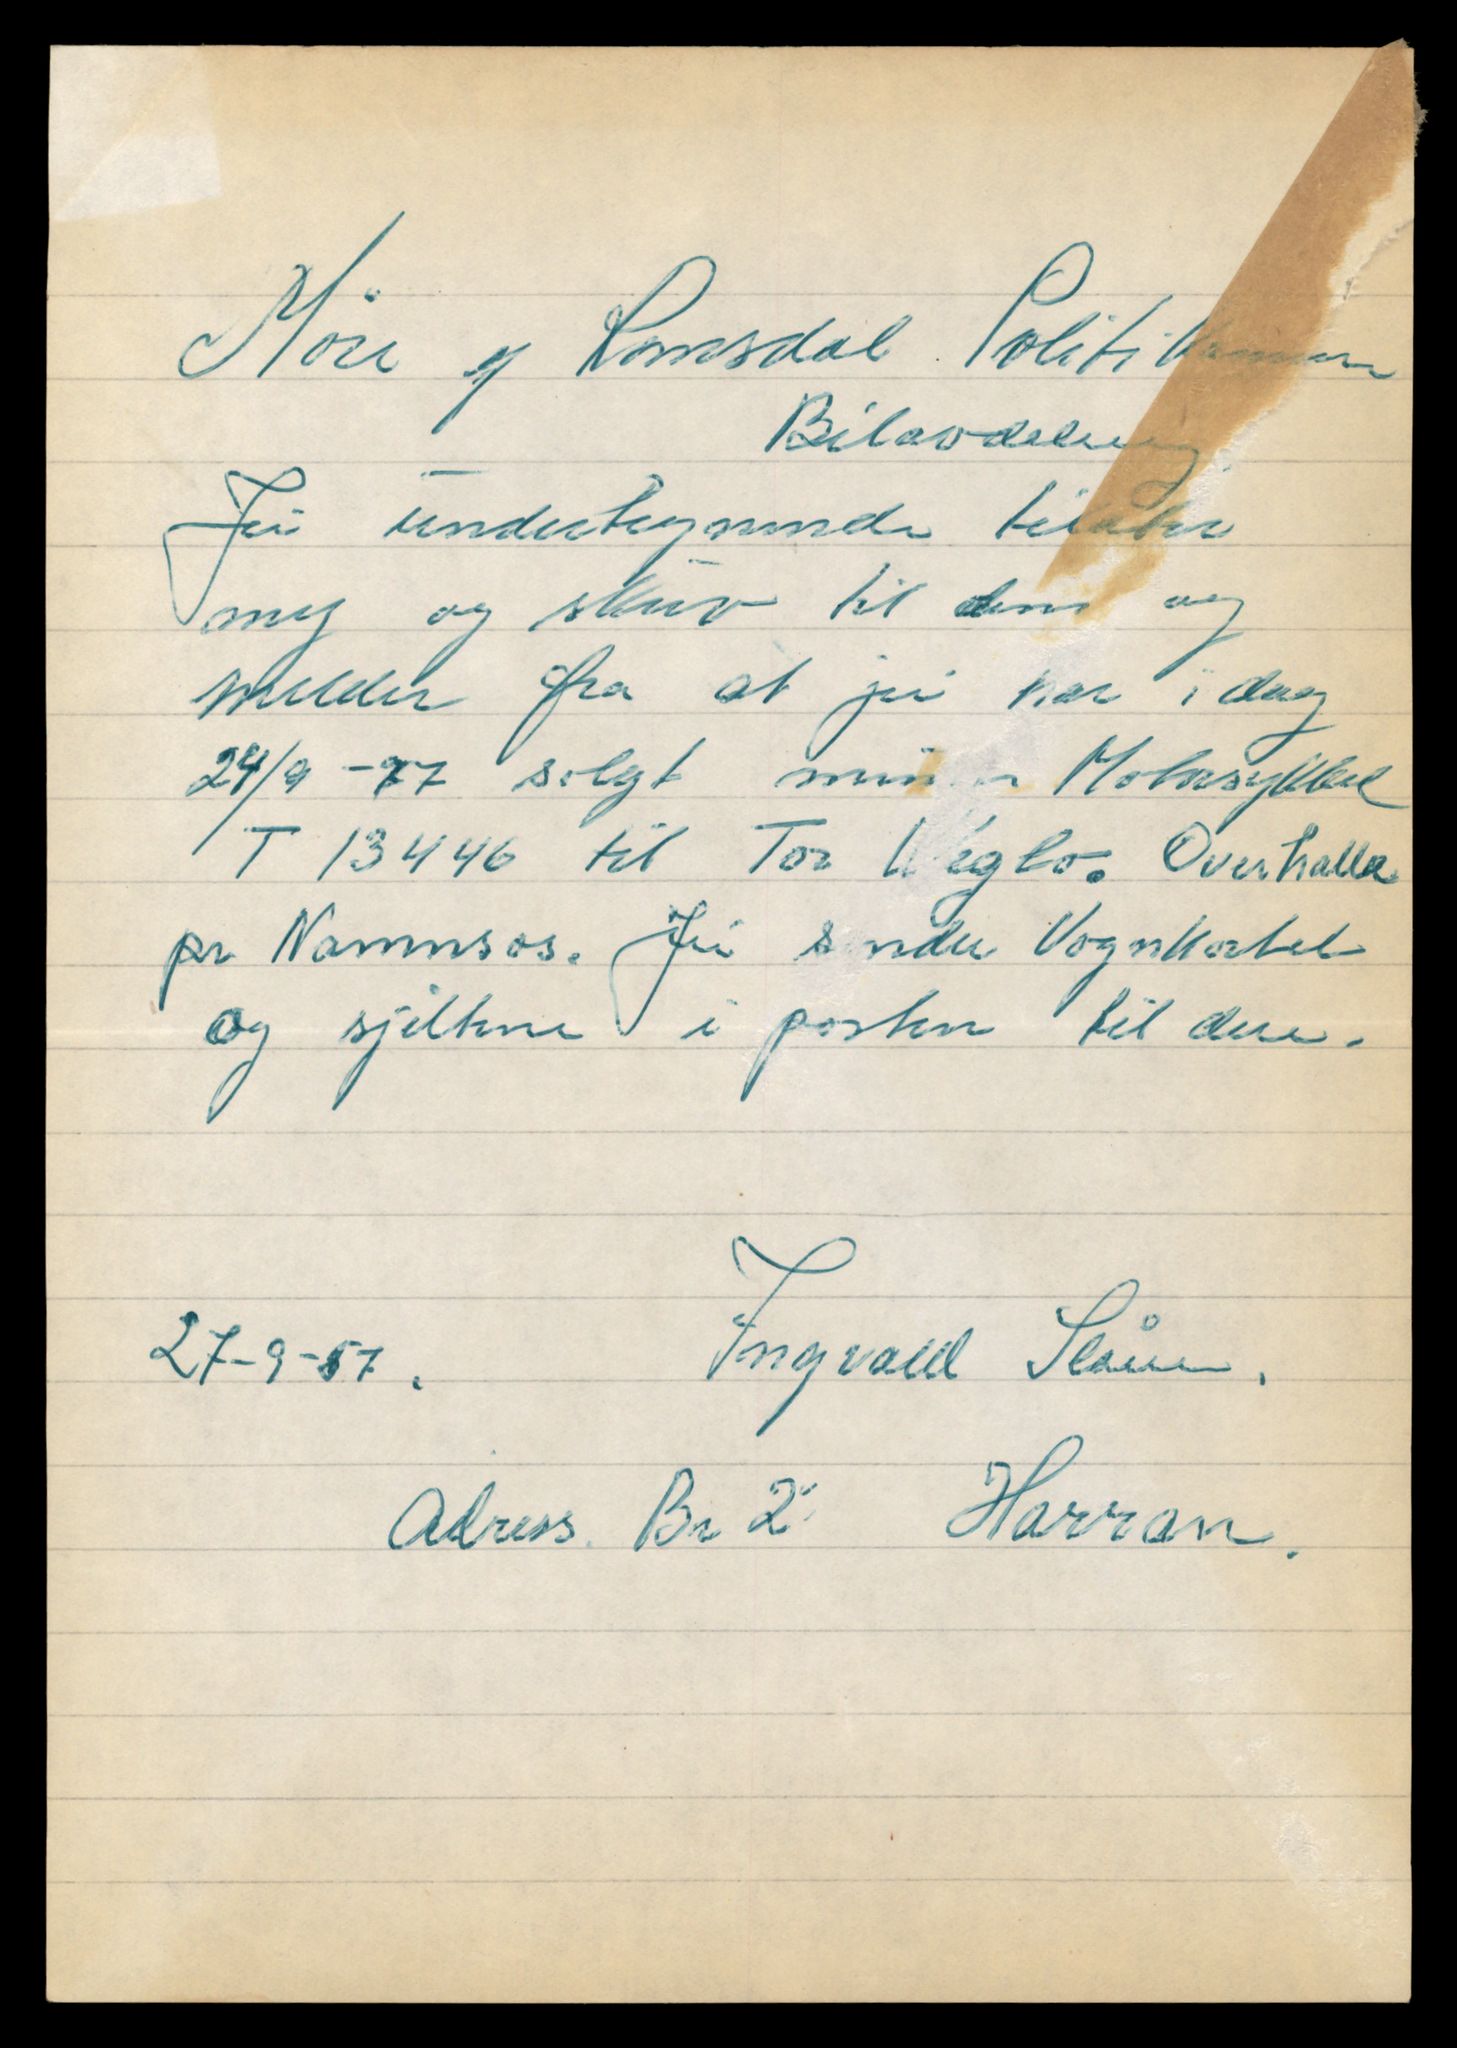 Möre og Romsdal Politikamer
Bilavdeling.
Jei undertegnende tilater
meg og skriv til dem og
melder fra at jei har idag
24/9 -77 solgt min Motorsykkel
T 13446 til Tor Veglo. Overhalla
pr Namnsos. Jei sender Vognkortet
og sjiltene i posten til dere.
27-9-57. Ingvald
Adress. Br 2 Harran.